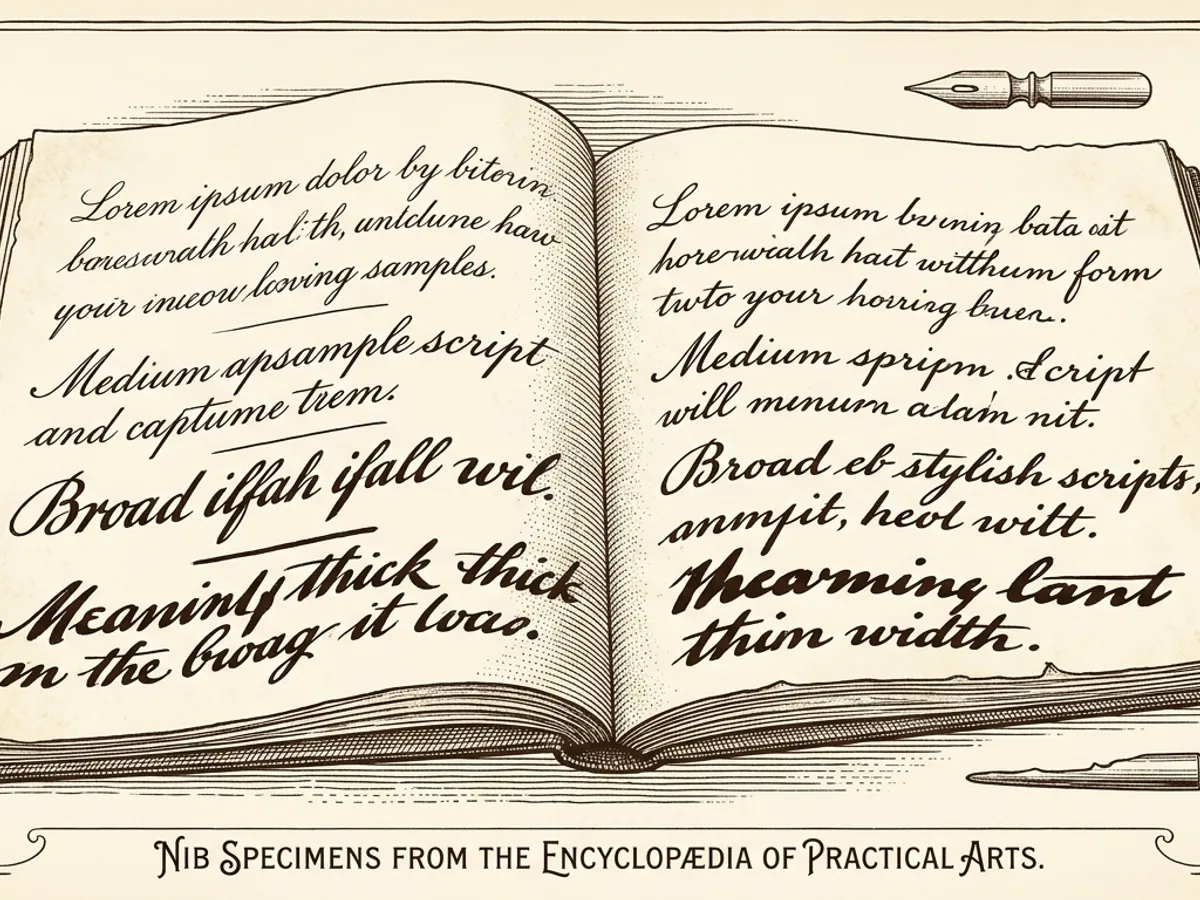 Lorem ipsum dolor by biterin
hal:th, untdune haw
your loving samples.
Medium apsample script
and captume trem.
Broad ilfah ifall wil.
Meaninly thick thick
in the it
Lorem ipsum bata oit
hait witthum form
twto your horring buen..
Medium spripm .Script
will menum alam nit.
Broad eb stylish scripts,
anmpit, heol witt.
lant
thim width.
NIB SPECIMENS FROM THE ENCYCLOPÆDIA OF PRACTICAL ARTS.